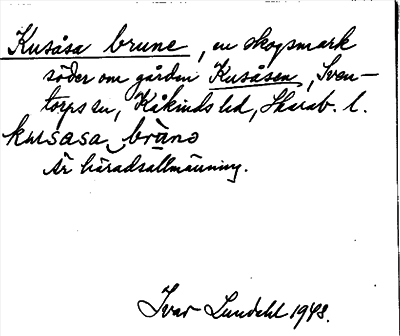 Kusåsa brune, en skogsmark
söder om gården Kusåsen, Sven-
torps sn, Kåkinds hd, Skarab. l.
kusasa bràno
Är häradsallmänning.
Ivar Lundahl 1948.